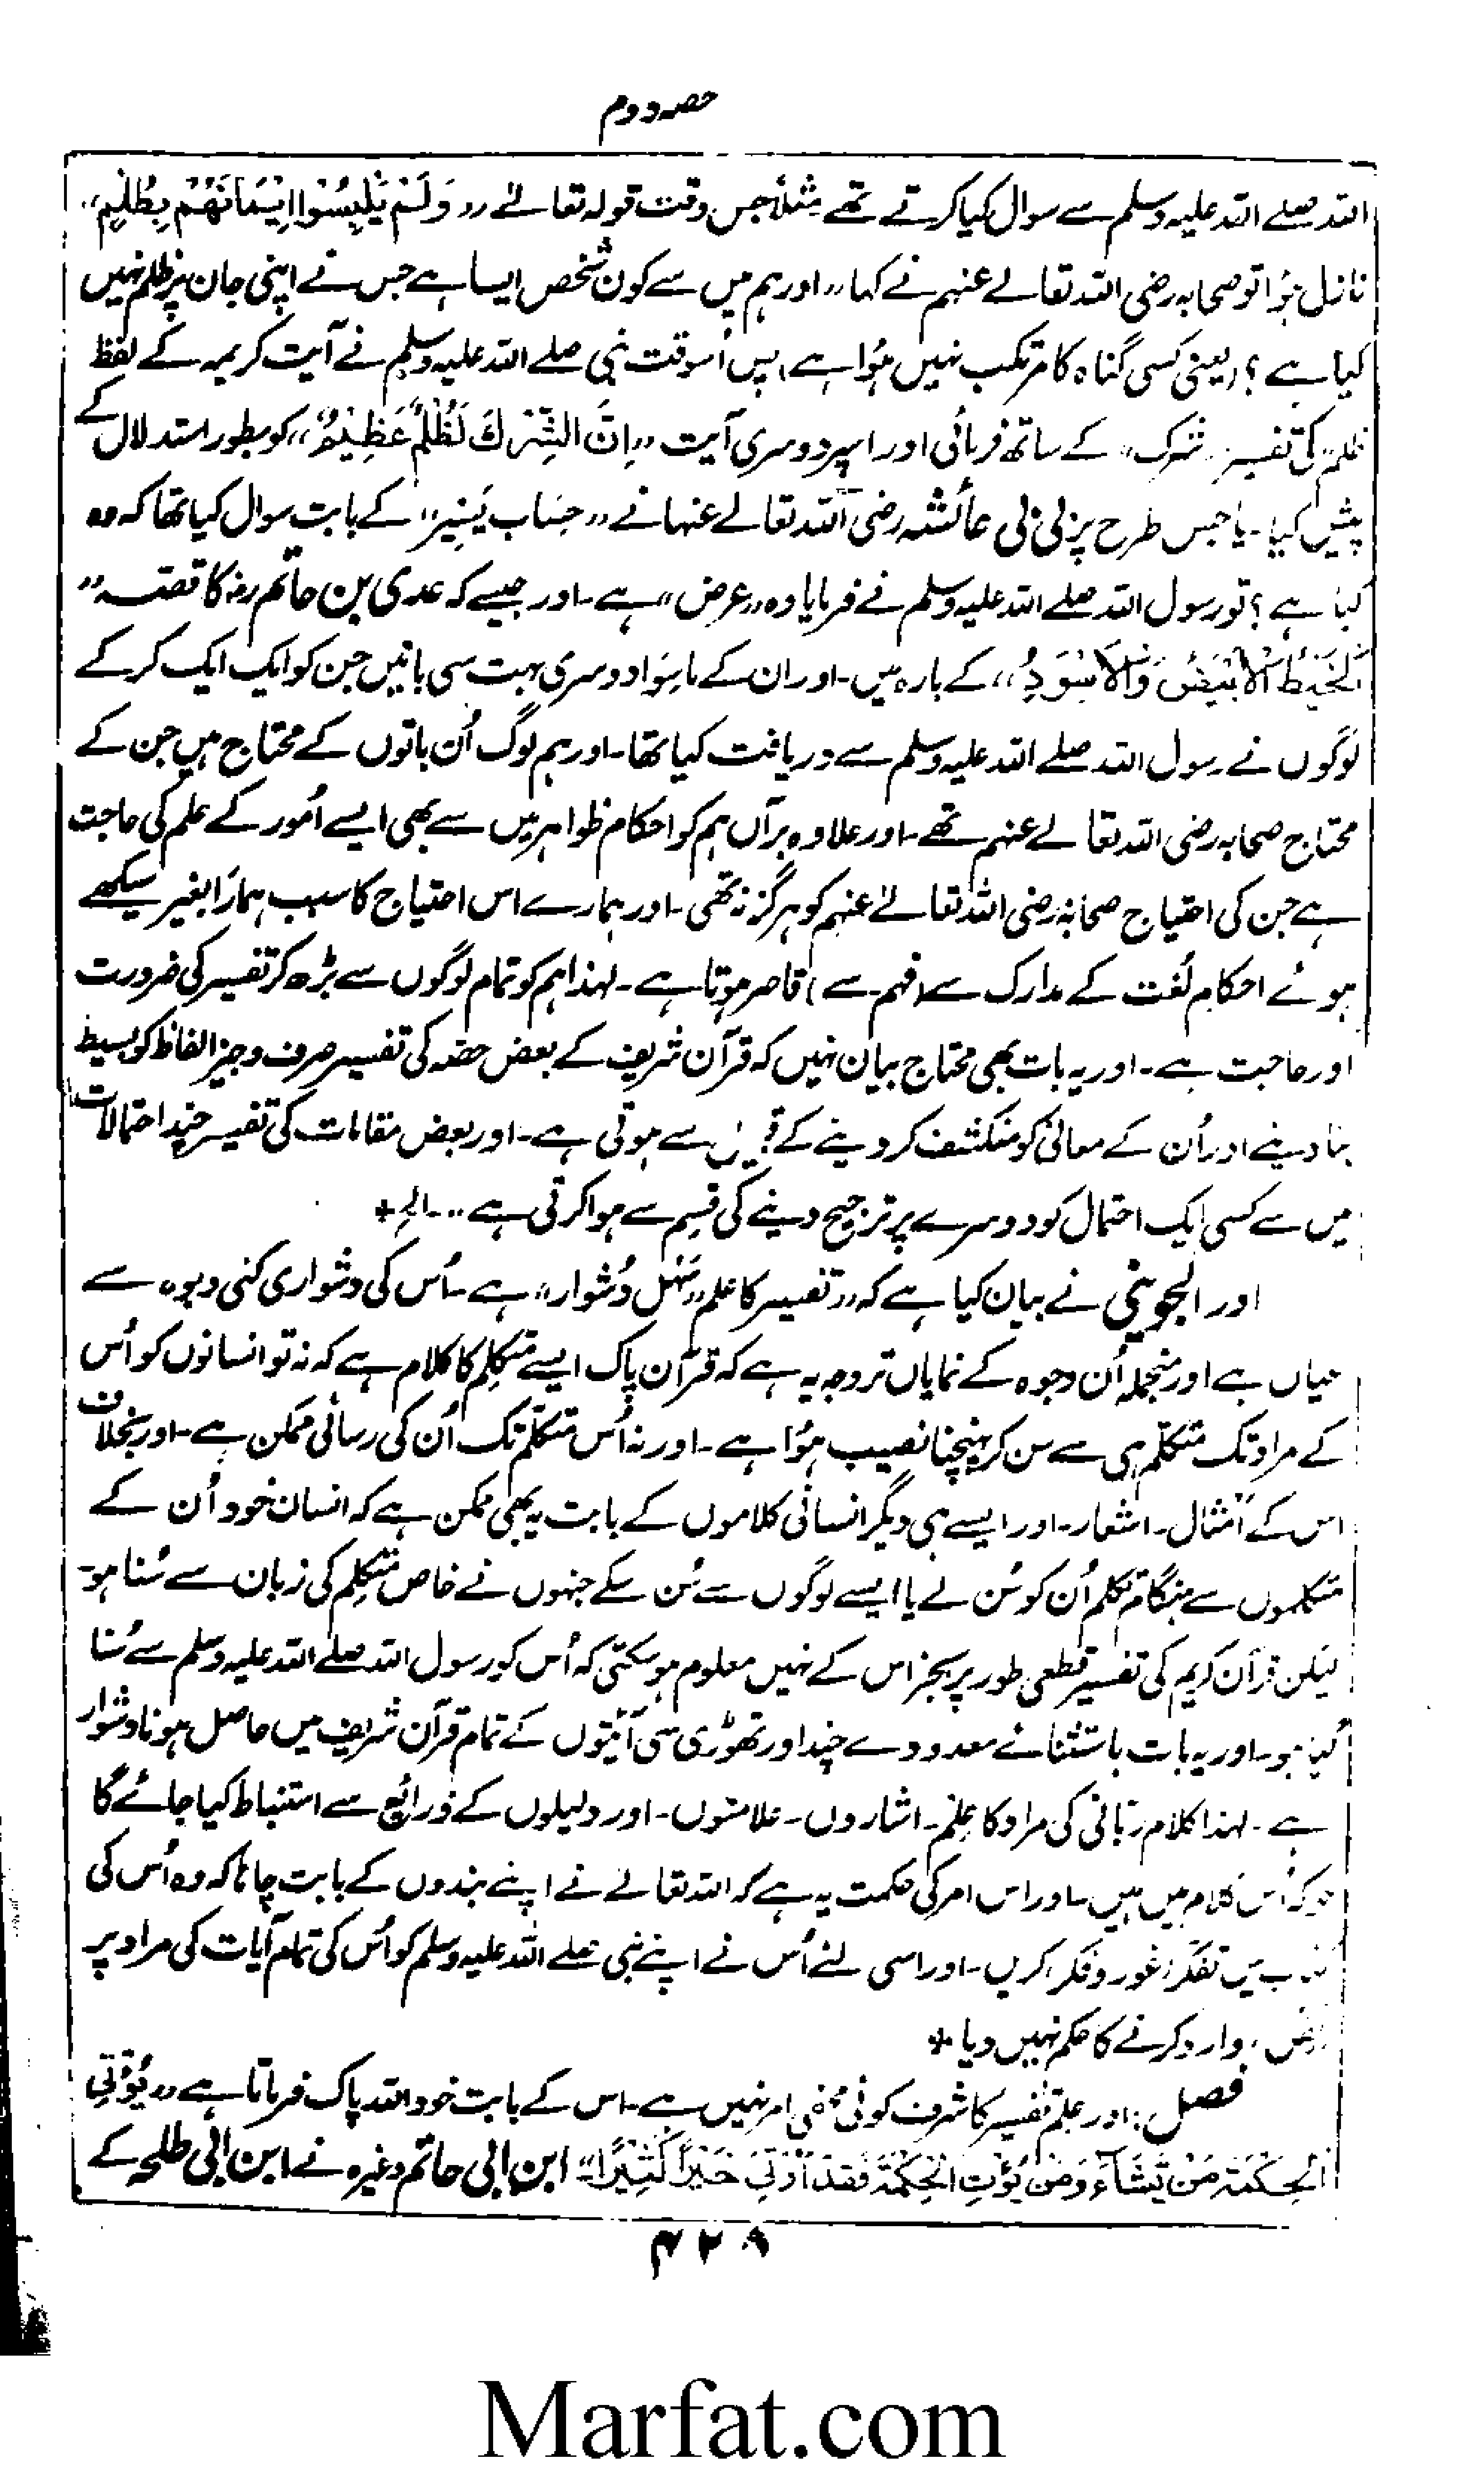 حصہ دوم
اللہ صلے اللہ علیہ وسلم سے سوال کیا کرتے تھے مثلاً جس وقت قولہ تعالےٰ "وَلَمْ يَلْبِسُوْا اِيْمَانَهُمْ بِظُلْمٍ"
نازل ہؤا تو صحابہ رضی اللہ تعالےٰ عنہم نے کہا "اور ہم میں سے کون شخص ایسا ہے جس نے اپنی جان پر ظلم نہیں
کیا ہے؟ (یعنی کسی گناہ کا مرتکب نہیں ہؤا ہے) پس اُسوقت نبی صلے اللہ علیہ وسلم نے آیت کریمہ کے لفظ
ظلم کی تفسیر "شرک" کے ساتھ فرمائی اور اسپر دوسری آیت "اِنَّ الشِّرْكَ لَظُلْمٌ عَظِيْمٌ" کو بطور استدلال کے
پیش کیا۔ یا جس طرح پر بی بی عائشہ رضی اللہ تعالےٰ عنہا نے "حِسَاب یَّسِیْر" کے بابت سوال کیا تھا کہ وہ
کیا ہے؟ تو رسول اللہ صلے اللہ علیہ وسلم نے فرمایا وہ "عرض" ہے۔ اور جیسے کہ عدی بن حاتم رضہ کا قصّہ "
اَلْخَيْطُ الْاَبْيَضُ وَالْاَسْوَدِ" کے بارہ میں۔ اور ان کے ماسِوَا دوسری بہت سی باتیں جن کو ایک ایک کر کے
لوگوں نے رسول اللہ صلے اللہ علیہ وسلم سے دریافت کیا تھا۔ اور ہم لوگ اُن باتوں کے محتاج ہیں جن کے
محتاج صحابہ رضی اللہ تعالےٰ عنہم تھے۔ اور علاوہ برآں ہم کو احکام ظواہر میں سے بھی ایسے اُمور کے علم کی حاجت
ہے جن کی احتیاج صحابہ رضی اللہ تعالےٰ عنہم کو ہرگز نہ تھی۔ اور ہمارے اس احتیاج کا سبب ہمارا بغیر سیکھے
ہوئے احکام لُغت کے مدارک سے (فہم سے) قاصر ہوتا ہے۔ لہذا ہم کو تمام لوگوں سے بڑھ کر تفسیر کی ضرورت
اور حاجت ہے۔ اور یہ بات بھی محتاج بیان نہیں کہ قرآن شریف کے بعض حصّہ کی تفسیر صرف وجیز الفاظ کو بسیط
بنا دینے اور اُن کے معانی کو منکشف کر دینے کے سے ہوتی ہے۔ اور بعض مقامات کی تفسیر چند احتمالات
میں سے کسی ایک احتمال کو دوسرے پر ترجیح دینے کی قسم سے ہوا کرتی ہے"۔ الخ +
اور الجوینی نے بیان کیا ہے کہ "تفسیر کا علم "سَہْل دُشوار" ہے۔ اُس کی دشواری کئی وجوہ سے
عیاں ہے اور منجملہ اُن وجوہ کے نمایاں تر وجہ یہ ہے کہ قرآن پاک ایسے متکلِّم کا کلام ہے کہ نہ تو انسانوں کو اُس
کے مراد تک متکلّم ہی سے سن کر پہنچنا نصیب ہؤا ہے۔ اور نہ اُس متکلّم تک اُن کی رسائی ممکن ہے۔ اور بخلاف
اس کے اَمثال۔ اشعار۔ اور ایسے ہی دیگر انسانی کلاموں کے بابت یہ بھی ممکن ہے کہ انسان خود اُن کے
متکلموں سے ہنگام تکلم اُن کو سُن لے یا ایسے لوگوں سے سُن سکے جنہوں نے خاص متکلِّم کی زبان سے سُنا ہو۔
لیکن قرآن کریم کی تفسیر قطعی طور پر بجز اس کے نہیں معلوم ہو سکتی کہ اُس کو رسول اللہ صلے اللہ علیہ وسلم سے سُنا
گیا ہو۔ اور یہ بات باستثنائے معدودے چند اور تھوڑی سی آیتوں کے تمام قرآن شریف میں حاصل ہونا دشوار
ہے۔ لہذا کلام ربّانی کی مراد کا عِلم۔ اشاروں۔ علامتوں۔ اور دلیلوں کے ذرائع سے استنباط کیا جائے گا
جو کہ اُس کلام میں ہیں۔ اور اس امر کی حکمت یہ ہے کہ اللہ تعالےٰ نے اپنے بندوں کے بابت چاہا کہ وہ اُس کی
کتاب میں تفکّر (غور و فکر) کریں۔ اور اسی لئے اُس نے اپنے نبی صلے اللہ علیہ وسلم کو اُس کی تمام آیات کی مراد پر
وارد کرنے کا حکم نہیں دیا +
فصل: اور علم تفسیر کا شرف کوئی مخفی امر نہیں ہے۔ اس کے بابت خود اللہ پاک فرماتا ہے "يُؤْتِي
الْحِكْمَةَ مَنْ يَّشَآءُ وَمَنْ يُّؤْتَ الْحِكْمَةَ فَقَدْ اُوْتِيَ خَيْرًا كَثِيْرًا" ابن ابی حاتم وغیرہ نے ابن ابی طلحہ کے
۴۲۹
Marfat.com